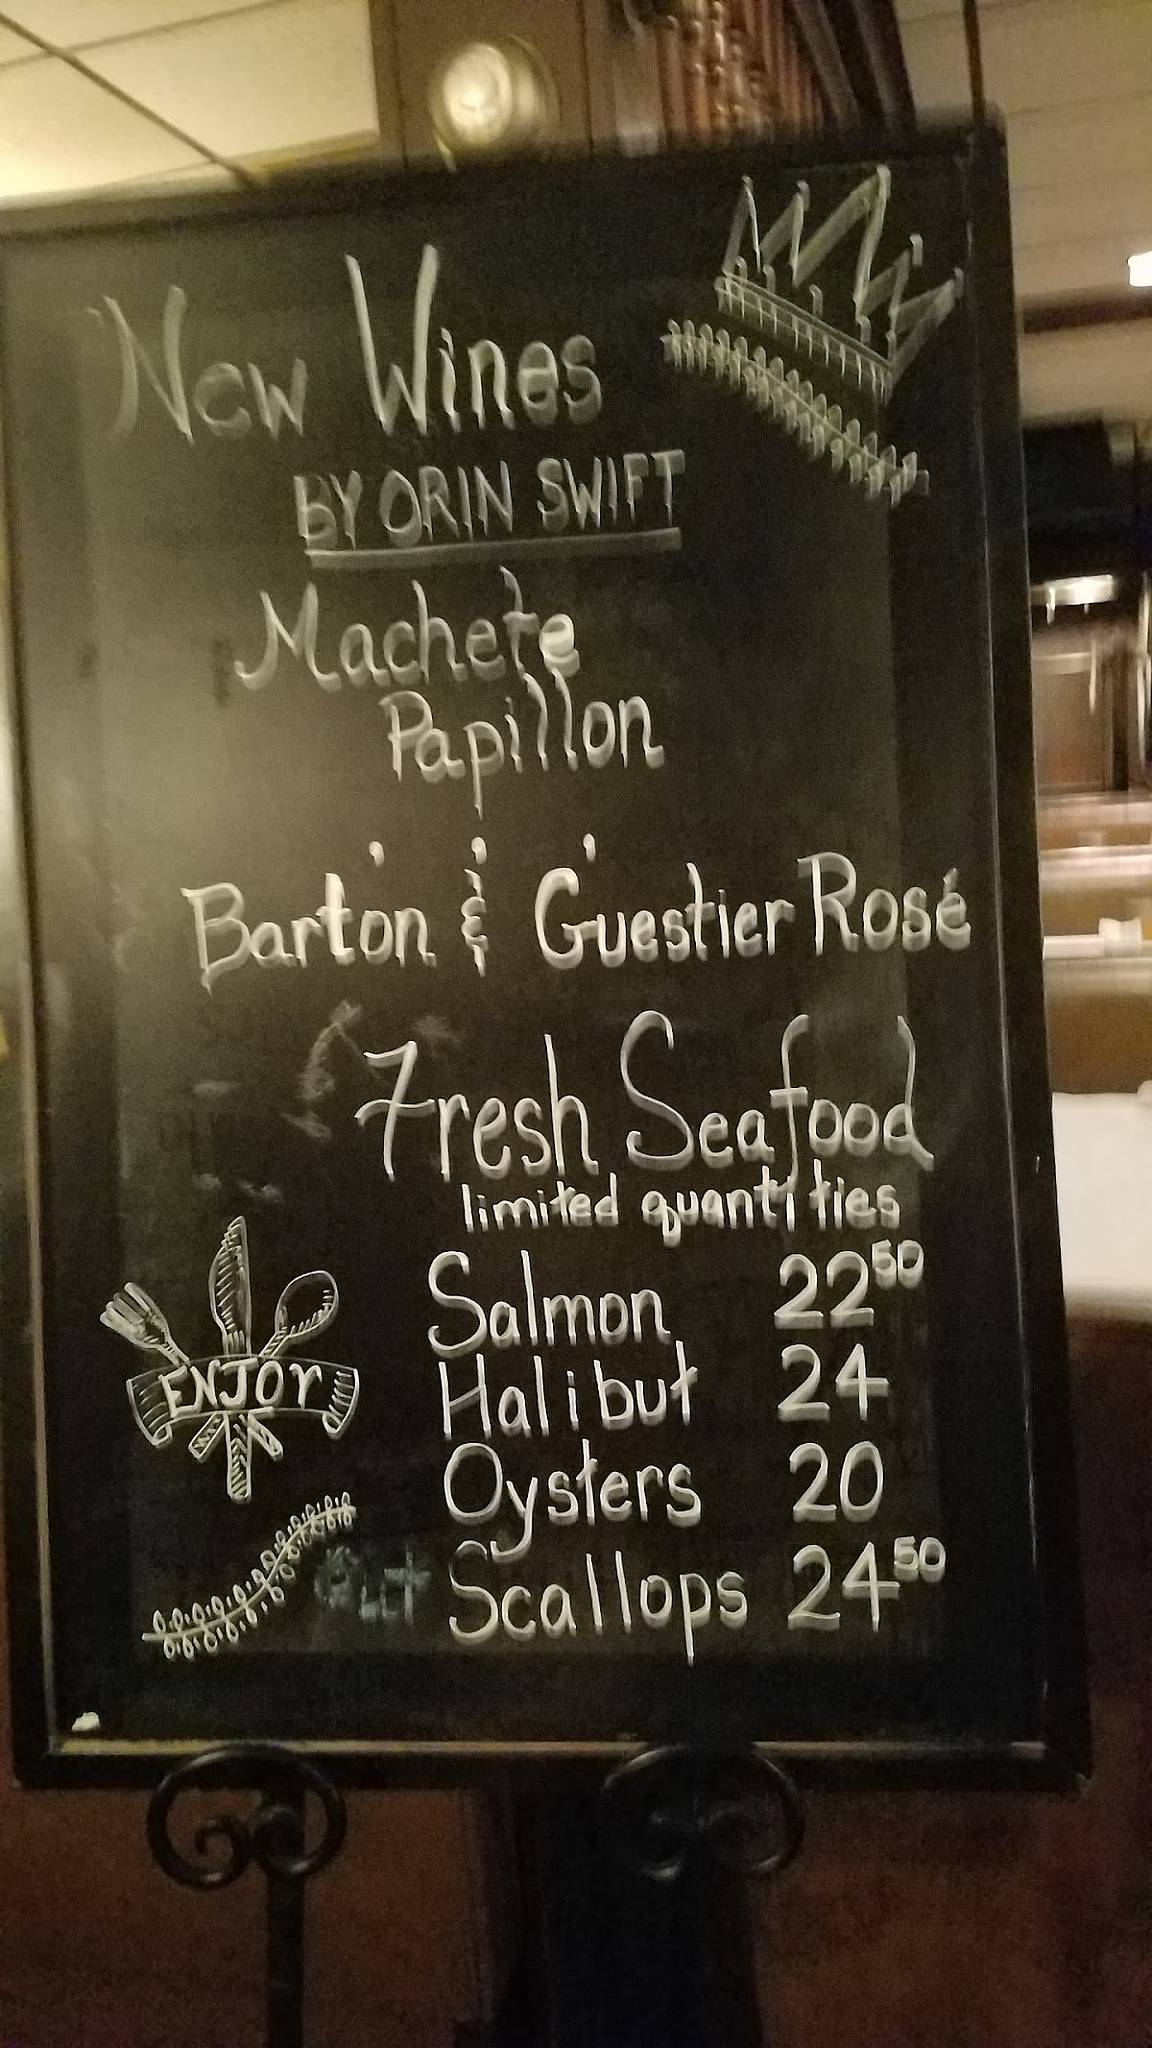 New Wines
BY ORIN SWIFT
Machete
Papillon
Barton & Guestier Rosé
Fresh Seafood
limited quantities
Salmon 22 50
Halibut 24
Oysters 20
Scallops 24 50
ENJOY